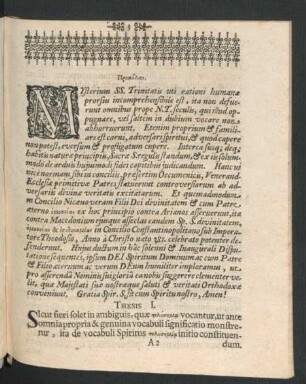 MYsterium SS. Trinitatis uti rationi humanæ
prorsus incomprehensibile est, ita non defuerunt
omnibus prope N.T. seculis, qui illud oppugnare,
vel saltem in dubium vocare non
abhorruerunt. Etenim proprium & familiare
est carni, adversari spiritui, & quod capere
non potest, eversum & profligatum cupere.
habitis naturæ principiis, Sacro
modo de arduis hujusmodi fidei capitibus judicandum. Hanc uti
normam sibi in conciliis, præsertim Oecumenicis, Venerandi
Ecclesiæ primitivæ Patres statuerunt controversiarum ab adversariis
divinæ veritatis excitatarum. Et quemadmodum
Concilio Nicæno veram Filii Dei divinitatem & cum Patre
æterno ex hoc principio contra Arianos asseruerunt, ita
contra Macedonium ejusque asseclas eandem Sp. S. divinitatem,
in Concilio Constantinopolitano sub Imperatore
Theodosio, Anno à Christo nato
Hujus ductum in hâc solenni & Inaugurali Disputatione
sequentes, ipsum DEI Spiritum Dominum ac cum Patre
& Filio æternum ac verum DEum humiliter imploramus, ut
pro asserendâ Nominis sui gloriâ ea nobis suggerere clementer velit,
quæ Majestati suæ nostræque saluti & veritati Orthodoxæ
conveniunt. Gratia Spir. S. sit cum Spiritu nostro, Amen!
THESIS I.
SIcut fieri solet in ambiguis, quæ vocantur, ut ante
omnia propria & genuina vocabuli significatio monstretur,
ita de vocabuli Spiritus initio constituen-
A 2 dum.